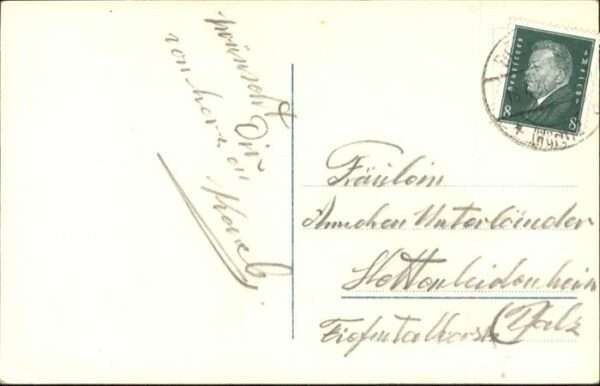 wünscht
Dir
von herzen
Deutsches Reich
8 8
Fräulein
Annchen Unterländer
Hettenleidenheim
(Pfalz